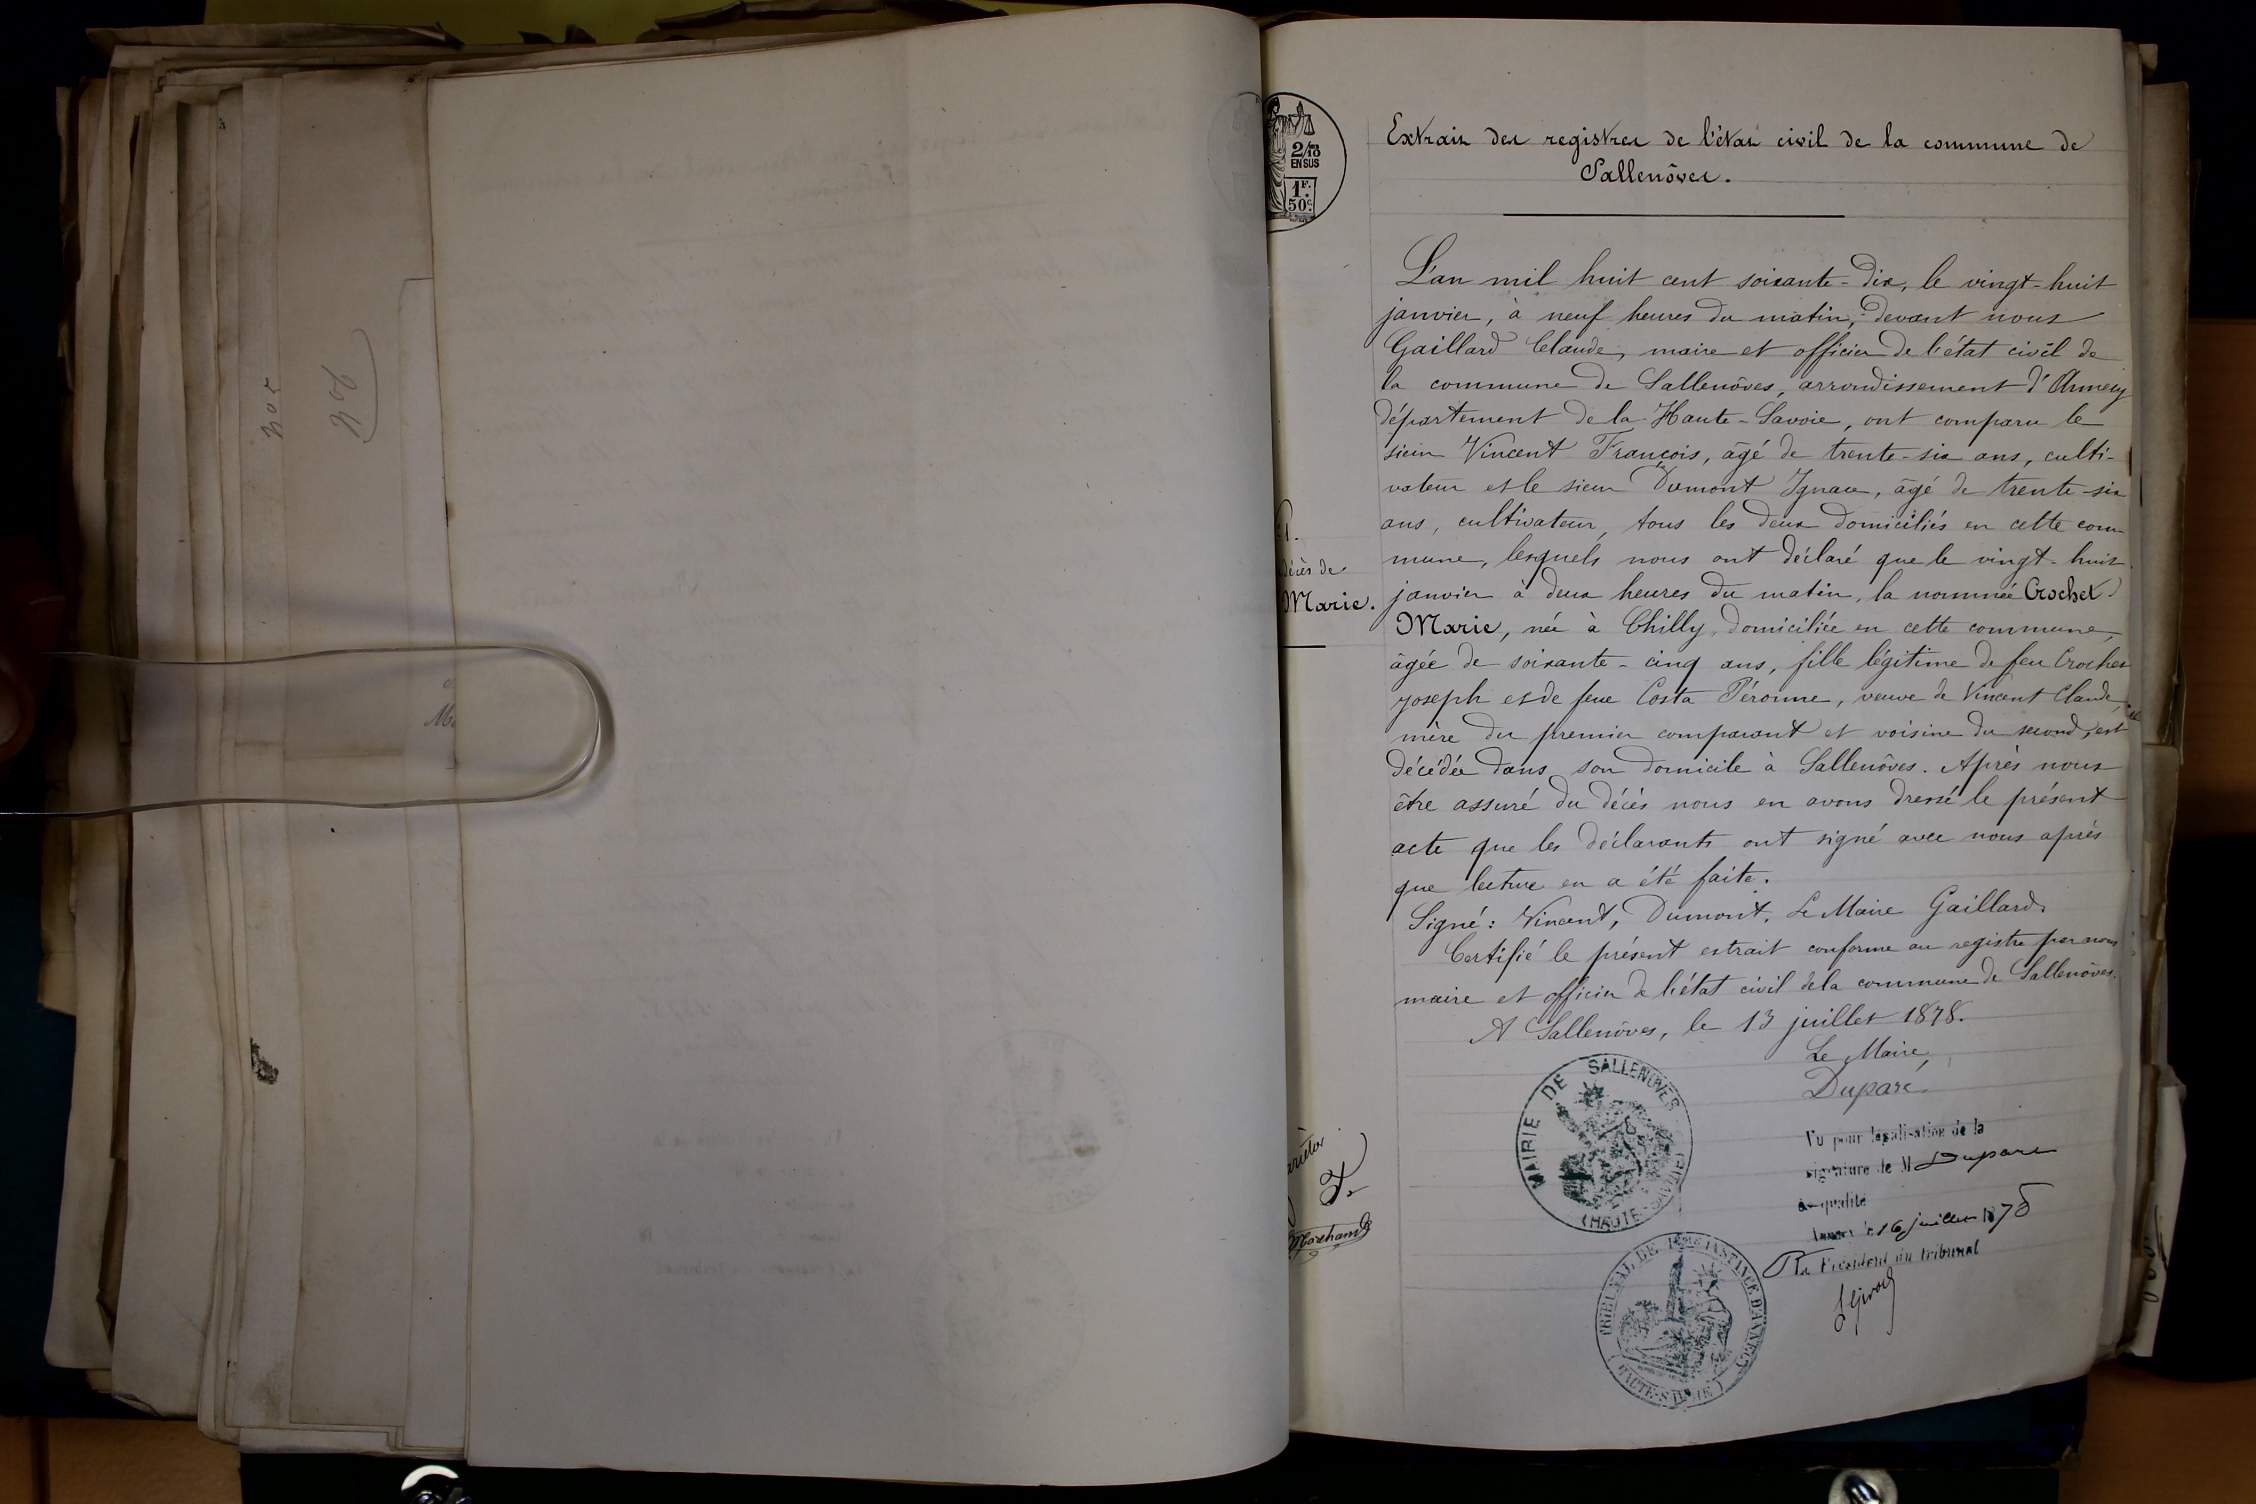 305
306
2/10
EN SUS
1F.
50c.
Extrait des registres de l'état civil de la commune de
Sallenôves.
L'an mil huit cent soixante-dix, le vingt-huit
janvier, à neuf heures du matin, devant nous
Gaillard Claude, maire et officier de l'état civil de
la commune de Sallenôves, arrondissement d'Annecy
département de la Haute-Savoie, ont comparu le
sieur Vincent François, âgé de trente-six ans, culti-
vateur et le sieur Dumont Ignace, âgé de trente-six
ans, cultivateur, tous les deux domiciliés en cette com-
mune, lesquels nous ont déclaré que le vingt-huit
janvier à deux heures du matin, la nommée Crochet
Marie, née à Chilly, domiciliée en cette commune,
âgée de soixante-cinq ans, fille légitime de feu Crochet
Joseph et de feue Costa Péronne, veuve de Vincent Claude,
mère du premier comparant et voisine du second, est
décédée dans son domicile à Sallenôves. Après nous
être assuré du décès nous en avons dressé le présent
acte que les déclarants ont signé avec nous après
que lecture en a été faite.
Signé: Vincent, Dumont. Le Maire Gaillard.
Certifié le présent extrait conforme au registre par nous
maire et officier de l'état civil de la commune de Sallenôves.
A Sallenôves, le 13 juillet 1878.
Le Maire,
Duparc
décès de
Marie.
Marchand
MAIRIE DE SALLENOVES
(HAUTE-SAVOIE)
Vu pour légalisation de la
signature de M Duparc
de qualité
Annecy le 16 juillet 1878
Le Président du tribunal
TRIBUNAL DE 1ère INSTANCE D'ANNECY
(HAUTE-SAVOIE)